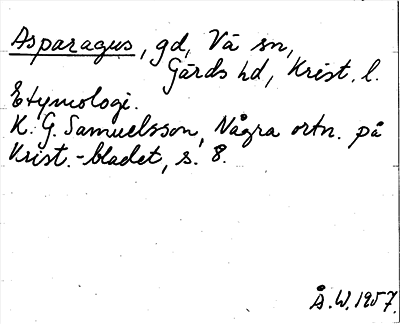 Asparagus, gd, Vä sn,
Gärds hd, Krist. l.
Etymologi.
K. G. Samuelsson, Några ortn. på
Krist.-bladet, s. 8.
Å.W.1957.